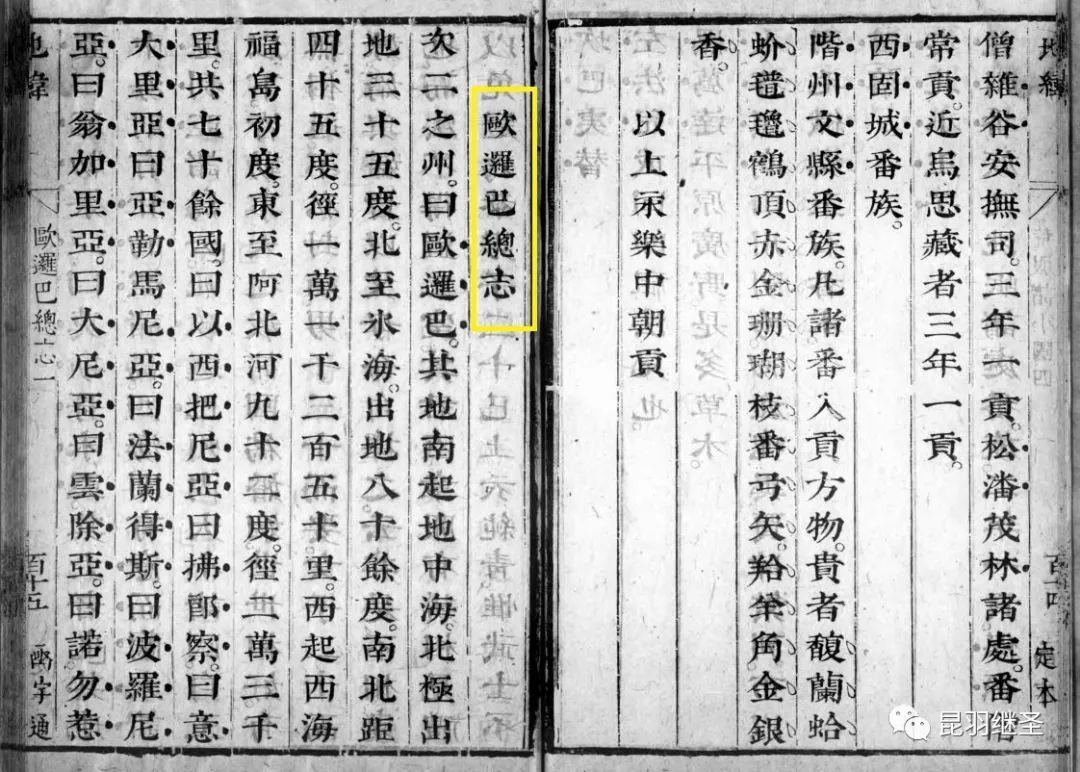 地緯
百十四
定本
僧雜谷安撫司三年一貢松潘茂林諸處番僧
常貢近烏思藏者三年一貢
西固城番族
階州文縣番族凡諸番入貢方物貴者馥蘭蛤
蚧氆氌鶴頂赤金珊瑚枝番弓矢羚羊角金銀
香
以上永樂中朝貢
歐邏巴總志
次二之州曰歐邏巴其地南起地中海北極出
地三十五度北至氷海出地八十餘度南北距
四十五度徑一萬一千二百五十里西起西海
福島初度東至阿北河九十二度徑二萬三千
里共七十餘國曰以西把尼亞曰拂郎察曰意
大里亞曰亞勒馬尼亞曰法蘭得斯曰波羅尼
亞曰翁加里亞曰大尼亞曰雲除亞曰諾勿惹
地緯
歐邏巴總志一
百十五
函宇通
昆羽继圣